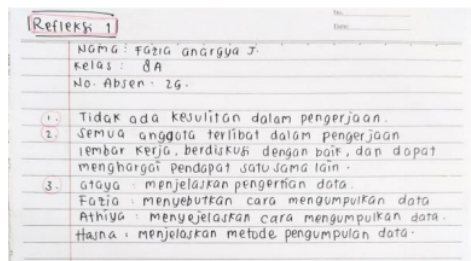 No.
Date:
Refleksi 1
Nama : Fazia anargya J.
Kelas : 8A
No. Absen . 26.
1. Tidak ada kesulitan dalam pengerjaan.
2. Semua anggota terlibat dalam pengerjaan
lembar kerja, berdiskusi dengan baik, dan dapat
menghargai pendapat satu sama lain .
3. ataya : menjelaskan pengertian data.
Fazia : menyebutkan cara mengumpulkan data
Athiya : menyejelaskan cara mengumpulkan data.
Hasna : menjelaskan metode pengumpulan data.